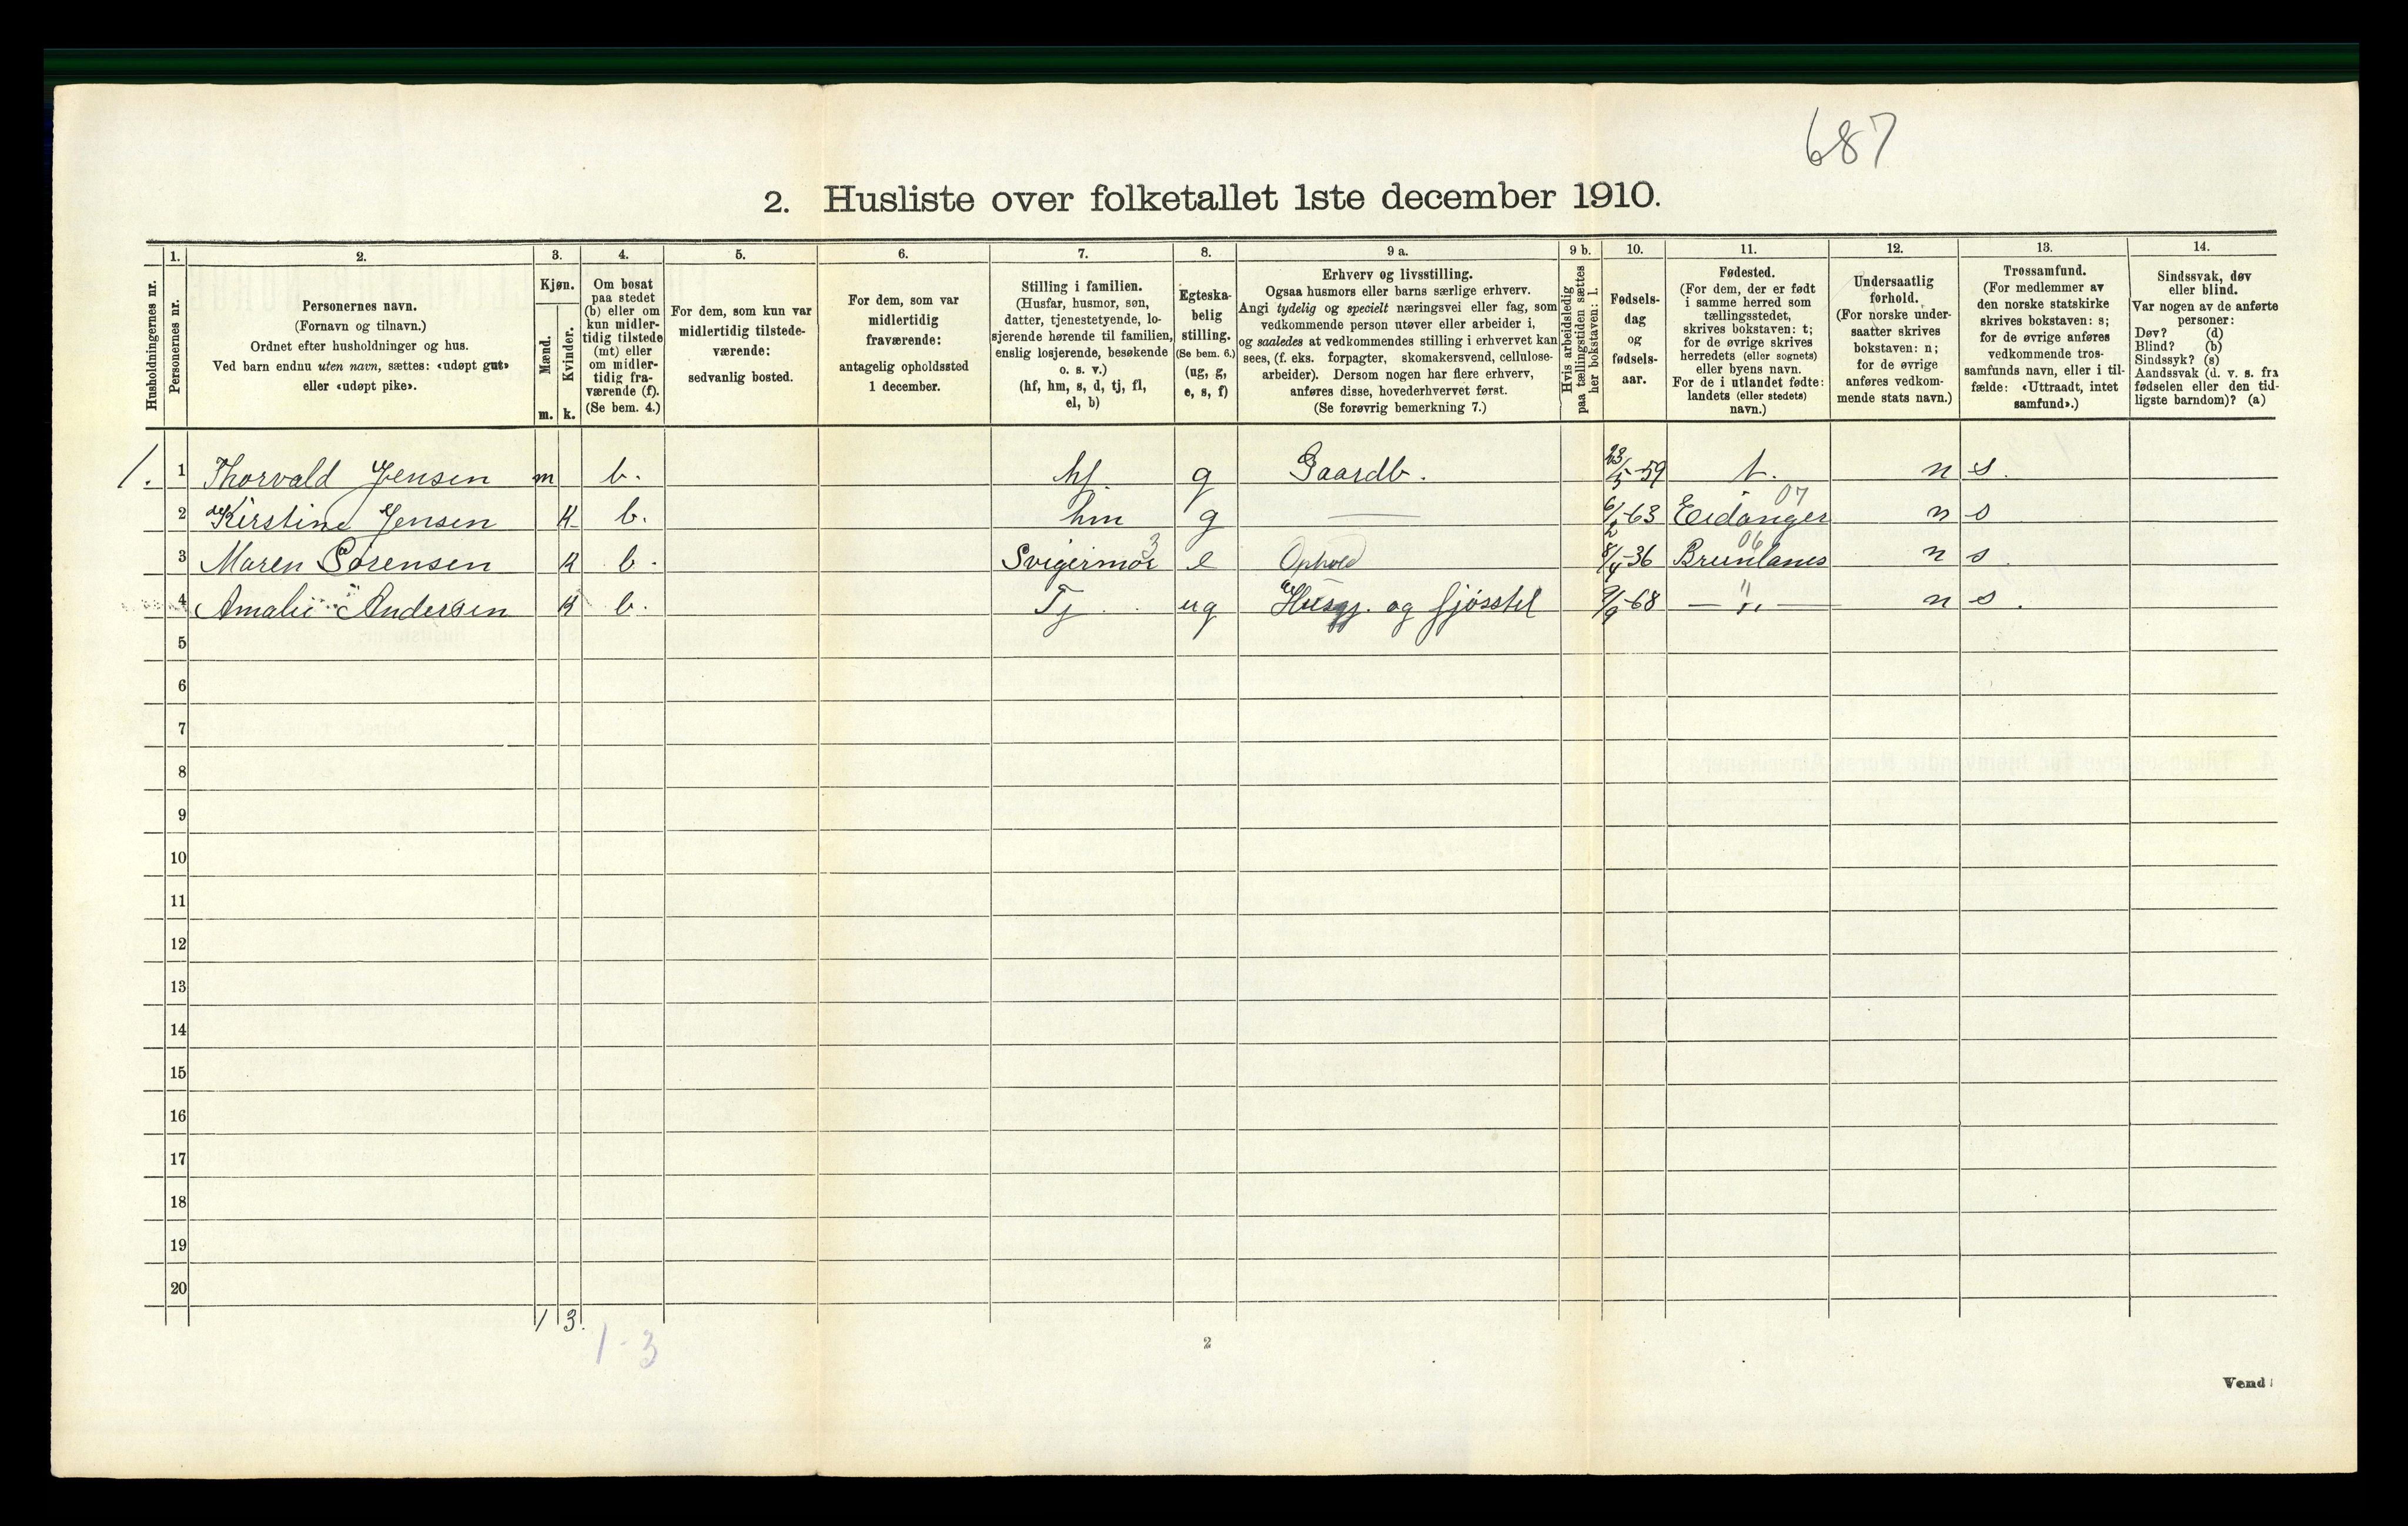 687
2. Husliste over folketallet 1ste december 1910.
Husholdningernes nr.
1.
Personernes nr.
2.
Personernes navn.
(Fornavn og tilnavn.)
Ordnet efter husholdninger og hus.
Ved barn endnu uten navn, sættes: «udøpt gut»
eller «udøpt pike».
3.
Kjøn.
Mænd.
m.
Kvinder.
k.
4.
Om bosat
paa stedet
(b) eller om
kun midler-
tidig tilstede
(mt) eller
om midler-
tidig fra-
værende (f).
(Se bem. 4.)
5.
For dem, som kun var
midlertidig tilstede-
værende:
sedvanlig bosted.
6.
For dem, som var
midlertidig
fraværende:
antagelig opholdssted
1 december.
7.
Stilling i familien.
(Husfar, husmor, søn,
datter, tjenestetyende, lo-
sjerende hørende til familien,
enslig losjerende, besøkende
o. s. v.)
(hf, hm, s, d, tj, fl,
el, b)
8.
Egteska-
belig
stilling.
(Se bem. 6.)
(ug, g,
e, s, f)
9 a.
Erhverv og livsstilling.
Ogsaa husmors eller barns særlige erhverv.
Angi tydelig og specielt næringsvei eller fag, som
vedkommende person utøver eller arbeider i,
og saaledes at vedkommendes stilling i erhvervet kan
sees, (f. eks. forpagter, skomakersvend, cellulose-
arbeider). Dersom nogen har flere erhverv,
anføres disse, hovederhvervet først.
(Se forøvrig bemerkning 7.)
9 b.
Hvis arbeidsledig
paa tællingstiden sættes
her bokstaven: l.
10.
Fødsels-
dag
og
fødsels-
aar.
11.
Fødested.
(For dem, der er født
i samme herred som
tællingsstedet,
skrives bokstaven: t;
for de øvrige skrives
herredets (eller sognets)
eller byens navn.
For de i utlandet fødte:
landets (eller stedets)
navn.)
12.
Undersaatlig
forhold.
(For norske under-
saatter skrives
bokstaven: n;
for de øvrige
anføres vedkom-
mende stats navn.)
13.
Trossamfund.
(For medlemmer av
den norske statskirke
skrives bokstaven: s;
for de øvrige anføres
vedkommende tros-
samfunds navn, eller i til-
fælde: «Uttraadt, intet
samfund».)
14.
Sindssvak, døv
eller blind.
Var nogen av de anførte
personer:
Døv? (d)
Blind? (b)
Sindssyk? (s)
Aandssvak (d. v. s. fra
fødselen eller den tid-
ligste barndom)? (a)
1. 1 Thorvald Jensen m b. hf. g Gaardb. 23/5-59 t. n s.
07
2 Kirstine Jensen K b. hm g — 6/2-63 Eidanger n s
3 06
3 Maren Sørensen K b. Svigermor e Ophold 8/4-36 Brunlanes n s.
4 Amalie Andersen K b. Tj. ug Husgj. og fjøsstel 9/9-68 — " — n s.
5
6
7
8
9
10
11
12
13
14
15
16
17
18
19
20
1 3.
1-3
2
Vend!